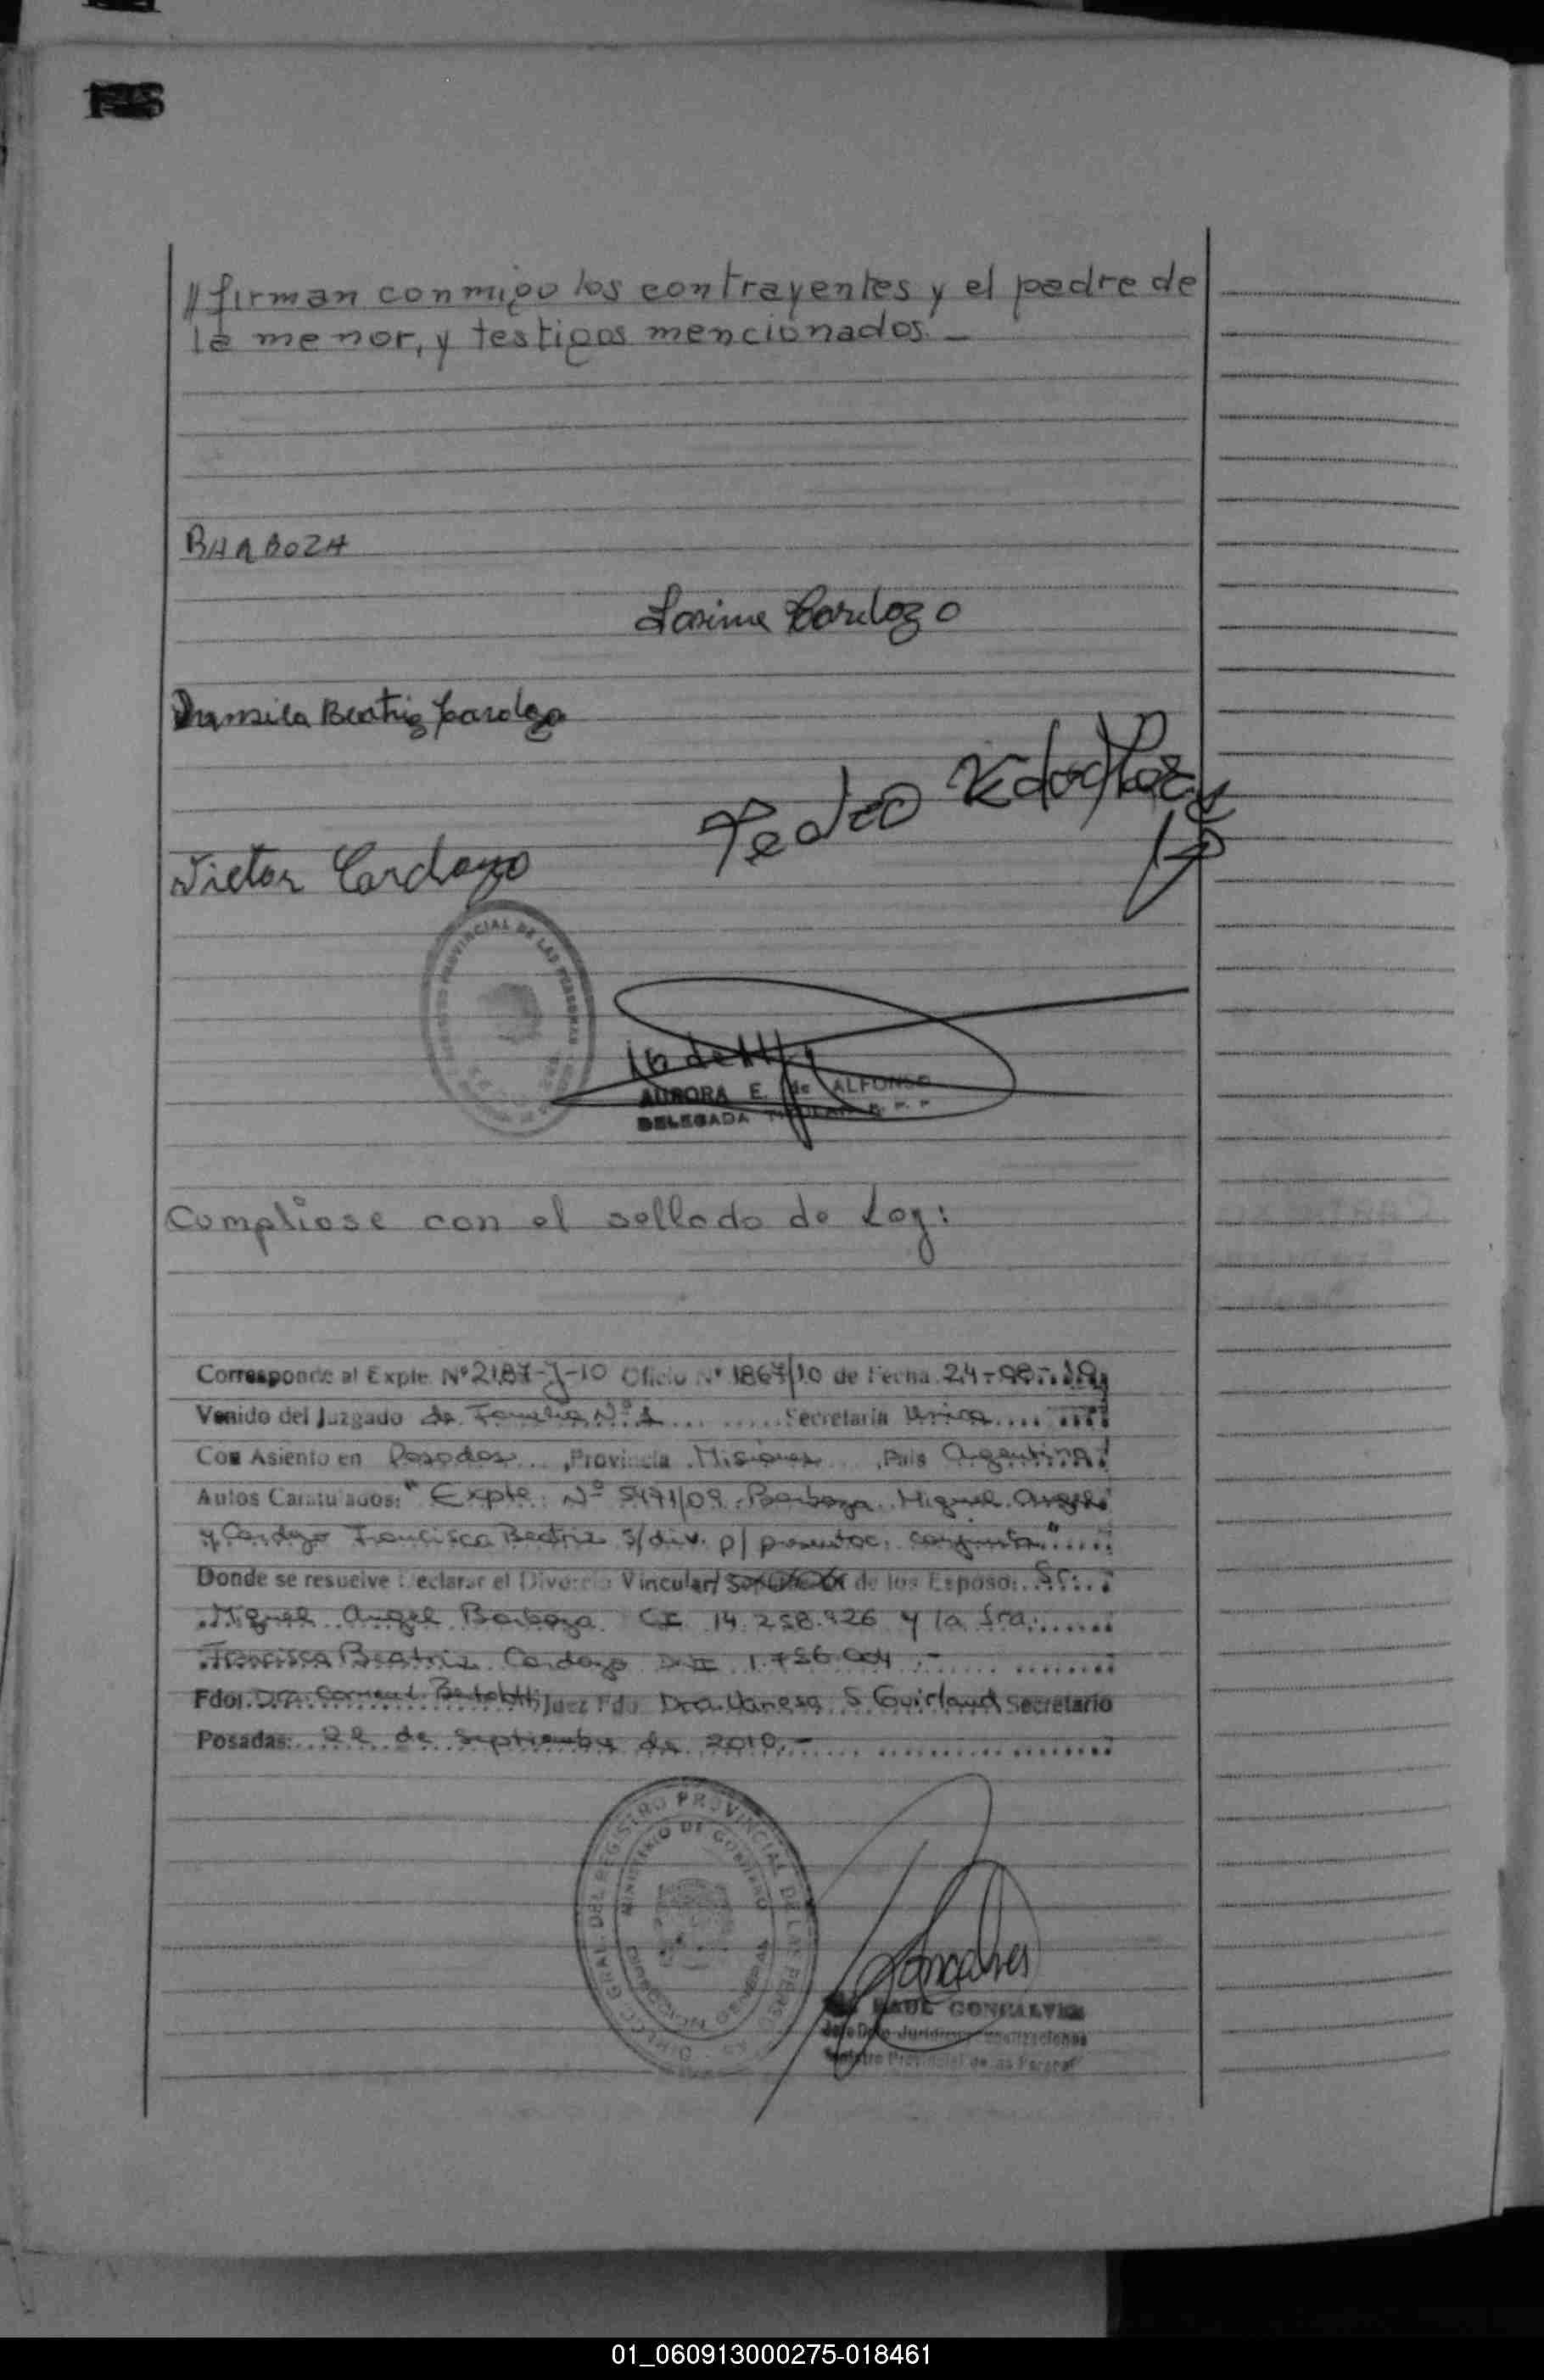 // firman conmigo los contrayentes y el padre de
la menor, y testigos mencionados. —
BARBOZA
Cardozo
Beatriz Cardozo
Pedro
Victor Cardozo
PROVINCIAL DE LAS PERSONAS
AURORA E. de ALFONSO
DELEGADA TITULAR R. P. P
Cumpliose con el sellado de Ley:
Corresponde al Expte. Nº 2187-J-10 Oficio Nº 1867/10 de Fecha 24-08-10
Venido del Juzgado de Familia Nº 1 Secretaria Unica
Con Asiento en Posadas, Provincia Misiones, Pais Argentina
Autos Caratulados: "Expte. Nº 5471/09 Barboza Miguel Angel
y Cardozo Francisca Beatriz s/div. p/ presentac. conjunta"
Donde se resuelve Declarar el Divorcio Vincular/ de los Esposo: Sr.
Miguel Angel Barboza CI 14.258.926 y la Sra.
Francisca Beatriz Cardozo 1.756.004 .-
Fdo. Dra. Bertolotti Juez Fdo. Dra. Vanesa S. Guirland Secretario
Posadas: 22 de Septiembre de 2010.-
DIRECC. GRAL. DEL REGISTRO PROVINCIAL DE LAS PERSONAS
MINISTERIO DE GOBIERNO
Goncalves
RAUL GONCALVES
Jefe Dpto Juridico
Registro Provincial de las Personas
01_060913000275-018461